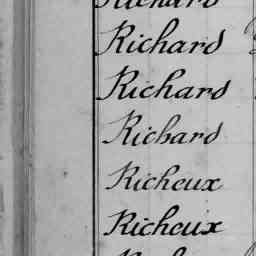 Richard
Richard
Richard
Richard
Richeux
Richeux